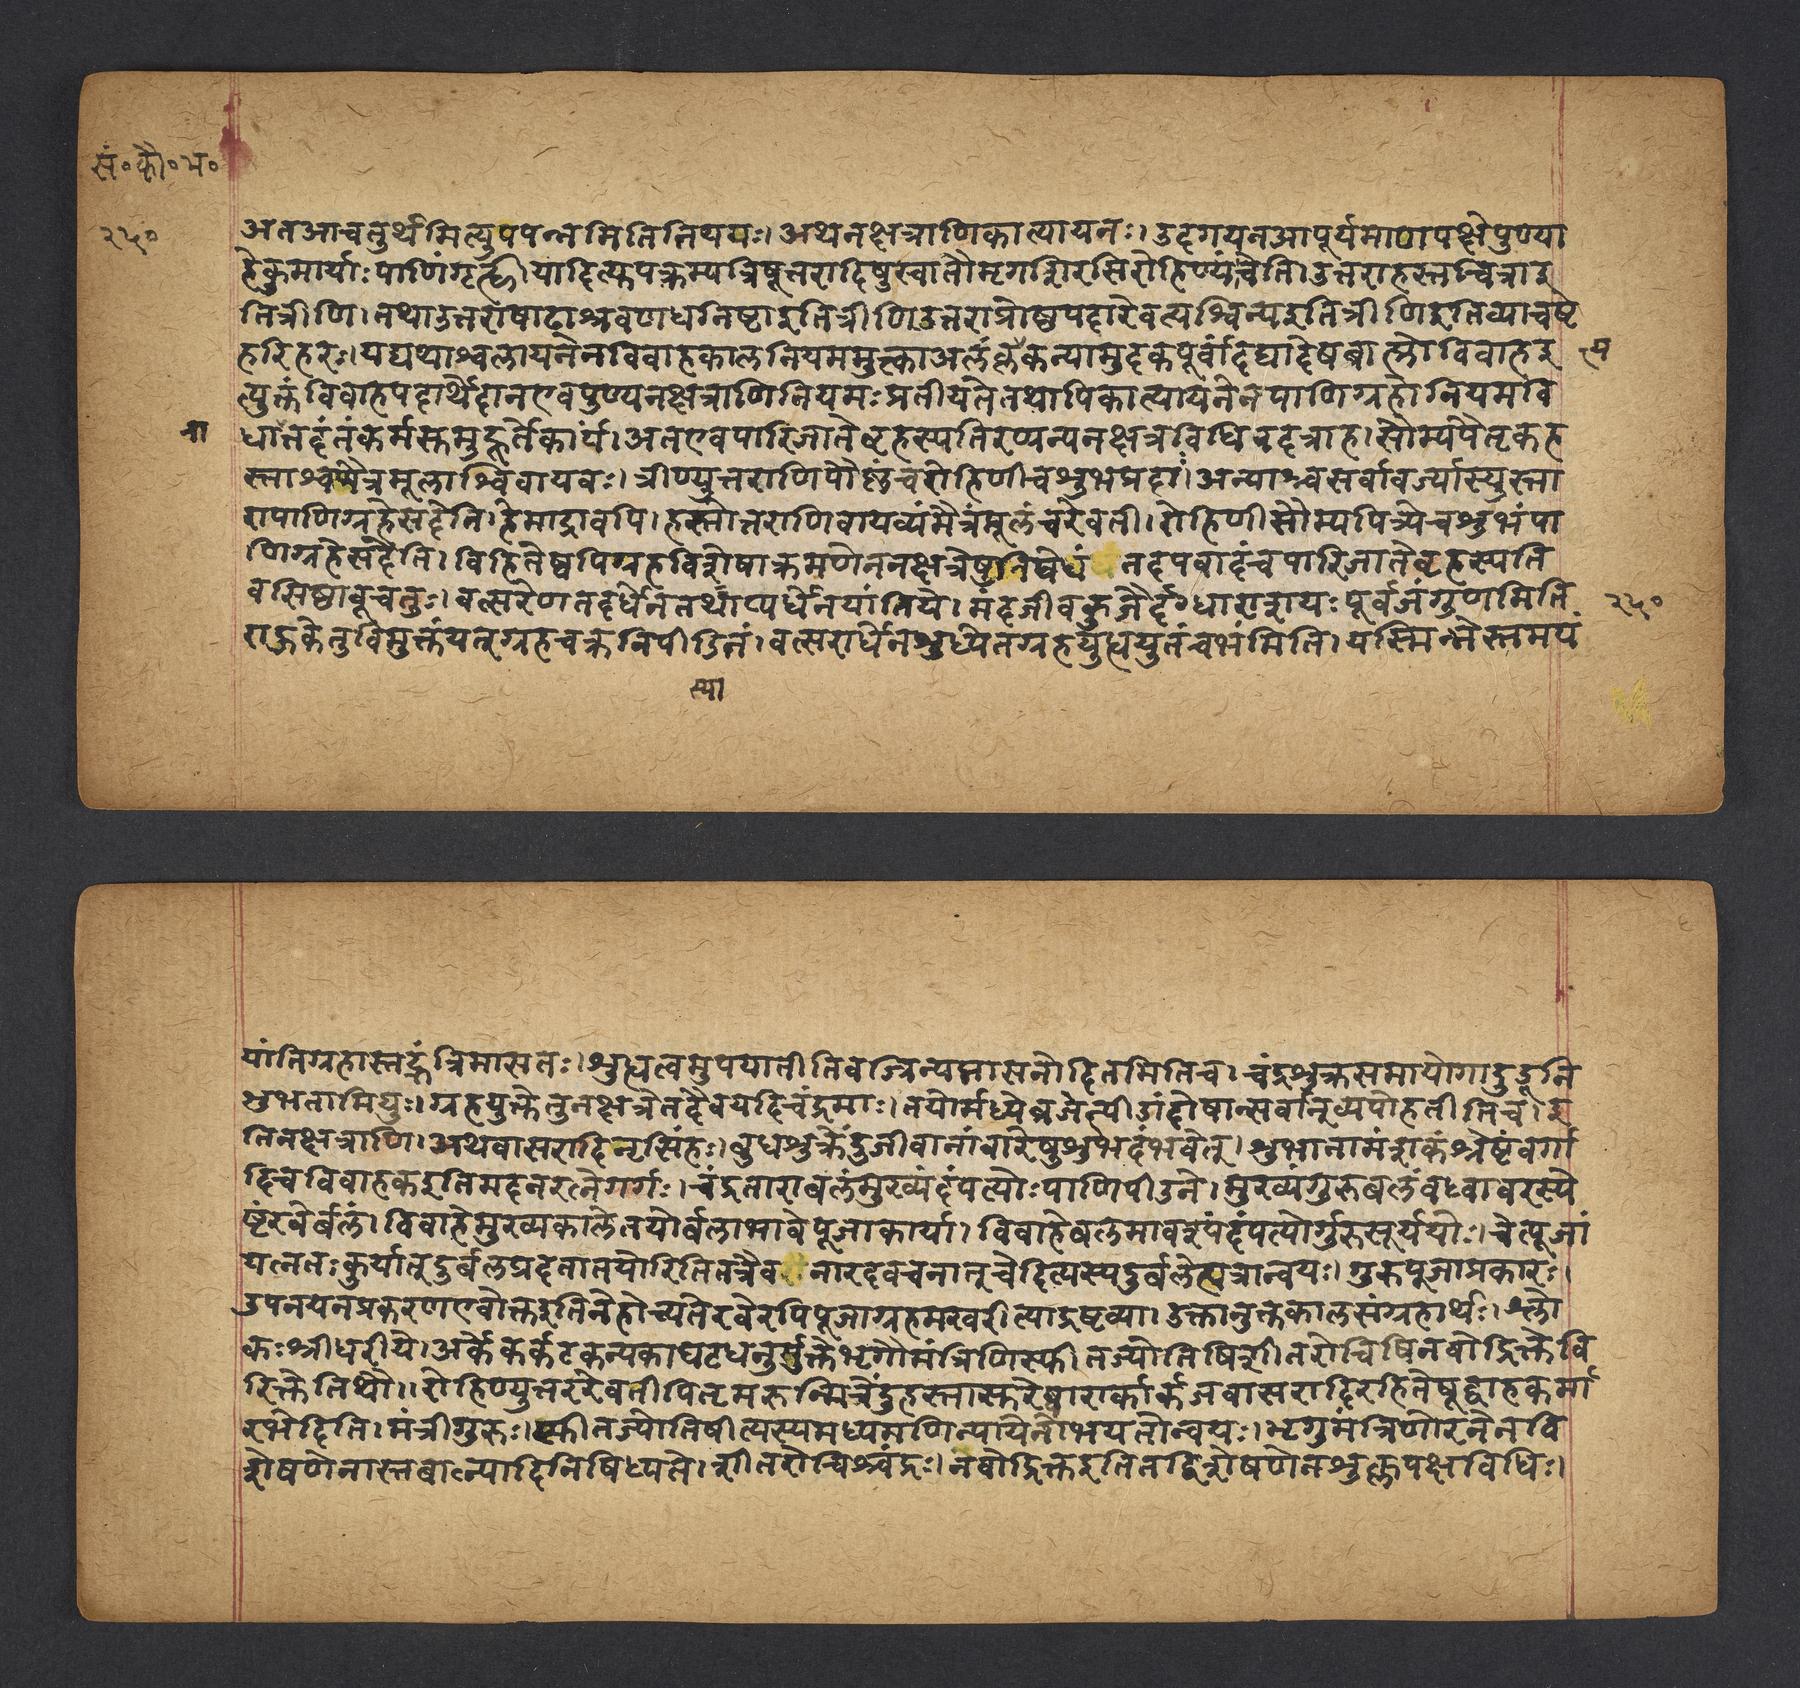 सं॰कौ॰भ॰
२५०
अतआचतुर्थमित्युपपन्नमितितिथयः। अथनक्षत्राणिकात्यायनः। उदगयनआपूर्यमाणपक्षेपुण्या
हेकुमार्याः पाणिंगृह्णी यादित्युपक्रम्यत्रिषूत्तरादिषुस्वातौमृगशिरसिरोहिण्यांचेति। उत्तराहस्तश्चित्राइ
तित्रीणि। तथाउत्तराषाढाश्रवणधनिष्टाइतित्रीणिउत्तराप्रोष्ठपदारेवत्यश्विन्यइतित्रीणिइतिव्याचष्टे
हरिहरः। यद्यप्याश्वलायनेनविवाहकालनियममुक्त्काअलंकृत्यकन्यामुदकपूर्वांदद्यादेषब्राह्मोविवाहइ
त्युक्तंविवाहपदार्थेदानएवपुण्यनक्षत्राणिनियमः प्रतीयतेतथापिकात्यायनेनपाणिग्रहानियमवि
ना
धानात्तदंतंकर्मस्तमुहूर्तेकार्यं। अतएवपारिजातेबृहस्पतिरप्यन्यनक्षत्रविधिरदत्राह। सौम्यपैतृकह
स्ताश्चमैत्रमूलाश्विवायवः। त्रीण्युत्तराणिपौष्णंचरोहिणीचशुभप्रदाः। अन्याश्चसर्वावर्ज्यास्युस्ता
रापाणिग्रहेसदेति। हेमाद्रावपि। हस्तोत्तराणिवायव्यंमैत्रंमूलंचरेवती। रोहिणीसौम्यपित्र्येचशुभंपा
णिग्रहेसदेति। विहितेष्वपिग्रहविशेषाक्रमणेननक्षत्रेषुनिषेधं तदपवादंचपारिजातेबृहस्पति
वसिष्ठावूचतुः। वत्सरेणतदर्धेनतथाप्यर्धेनयांतिये। मंदजीवकुजैर्दग्धाराशयः पूर्वजंगुणमिति
२५०
राहुकेतुविमुक्तंयत्ग्रहचक्रनिपीडितं। वत्सरार्धेनशुध्येतग्रहयुध्ययुतंचभंमिति। यस्मिन्नस्तमयं
स्या
यांतिग्रहास्तदृक्षंत्रिमासतः। शुध्यत्वमुपयातीतिवज्रिन्यद्मासनोदितमितिच। चंद्रशुक्रसमायोगादुडूनि
शुभतामियुः। ग्रहयुक्तेतुनक्षत्रेतदैवयदिचंद्रमाः। तयोर्मध्येव्रजेत्पीडांदोषान्सर्वान्व्यपोहतीतिच। इ
तिनक्षत्राणि। अथवासरादिनृसिंहः। बुधशुक्रेंदुजीवानांवारेषुशुभदंभवेत्। शुभानामंशकंश्रेष्टंवर्गा
दिचविवाहकइतिमदनरत्नेगर्गः। चंद्रताराबलंमुख्यंदंपत्योः पाणिपीडने। मुख्यंगुरुबलंवध्वावरस्ये
ष्टंरवेर्बलं। विवाहेमुख्यकालेतयोर्बलाभावेपूजाकार्या। विवाहेबलमावश्यंदंपत्योर्गुरुसूर्ययोः। चेत्पूजां
यत्नतः कुर्यात्दुर्बलप्रदतातयोरितितत्रैव नारदवचनात्चेदित्यस्यदुर्बलेत्यत्रान्वयः। गुरुपूजाप्रकारः।
उपनयनप्रकरणएवोक्तइतिनेहोच्यतेरवेरपिपूजाग्रहमखरीत्याद्रष्टव्या। उक्तानुक्तकालसंग्रहार्थः। श्लो
कः श्रीधरीये। अर्केकर्कटकन्यकाघटधनुर्मुक्तेभृगौमंत्रिणिस्फीतज्योतिषिशीतरोचिषिनवोद्रिक्तेवि
रिक्तेतिथौ॥ रोहिण्युत्तररेवतीपितृमरुन्मित्रेंदुहस्तास्तरेष्वारार्कार्कजवासरादिरहितेषूद्वाहकर्मा
रभेदिति। मंत्रीगुरुः। स्फीतज्योतिषीत्यस्यमध्यमणिन्यायेनोभयतोन्वयः। भृगुमंत्रिणोरनेनवि
शेषणेनास्तबाल्यादिनिषिध्यते। शीतरोचिश्चंद्रः। नवोद्रिक्तइतितद्विशेषणेनशुक्लपक्षविधिः।